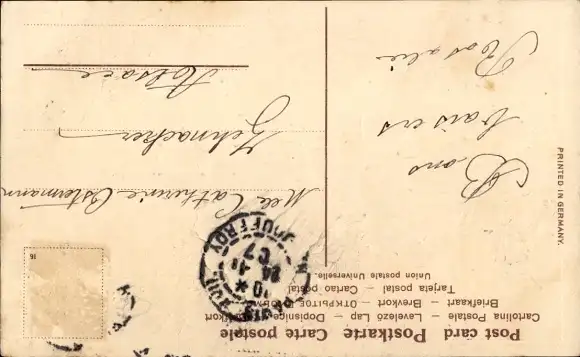 Post card Postkarte Carte postale
Cartolina Postale – Levelező Lap – Dopisnice –
Briefkaart – Brevkort – Открытое
Tarjeta postal – Cartao postal
Union postale Universelle.
Bons
baisers
Rosalie
Mlle Catherine Ostermann
Zehnacker
Alsace
JOUFFROY
10
24
07
16
PRINTED IN GERMANY.